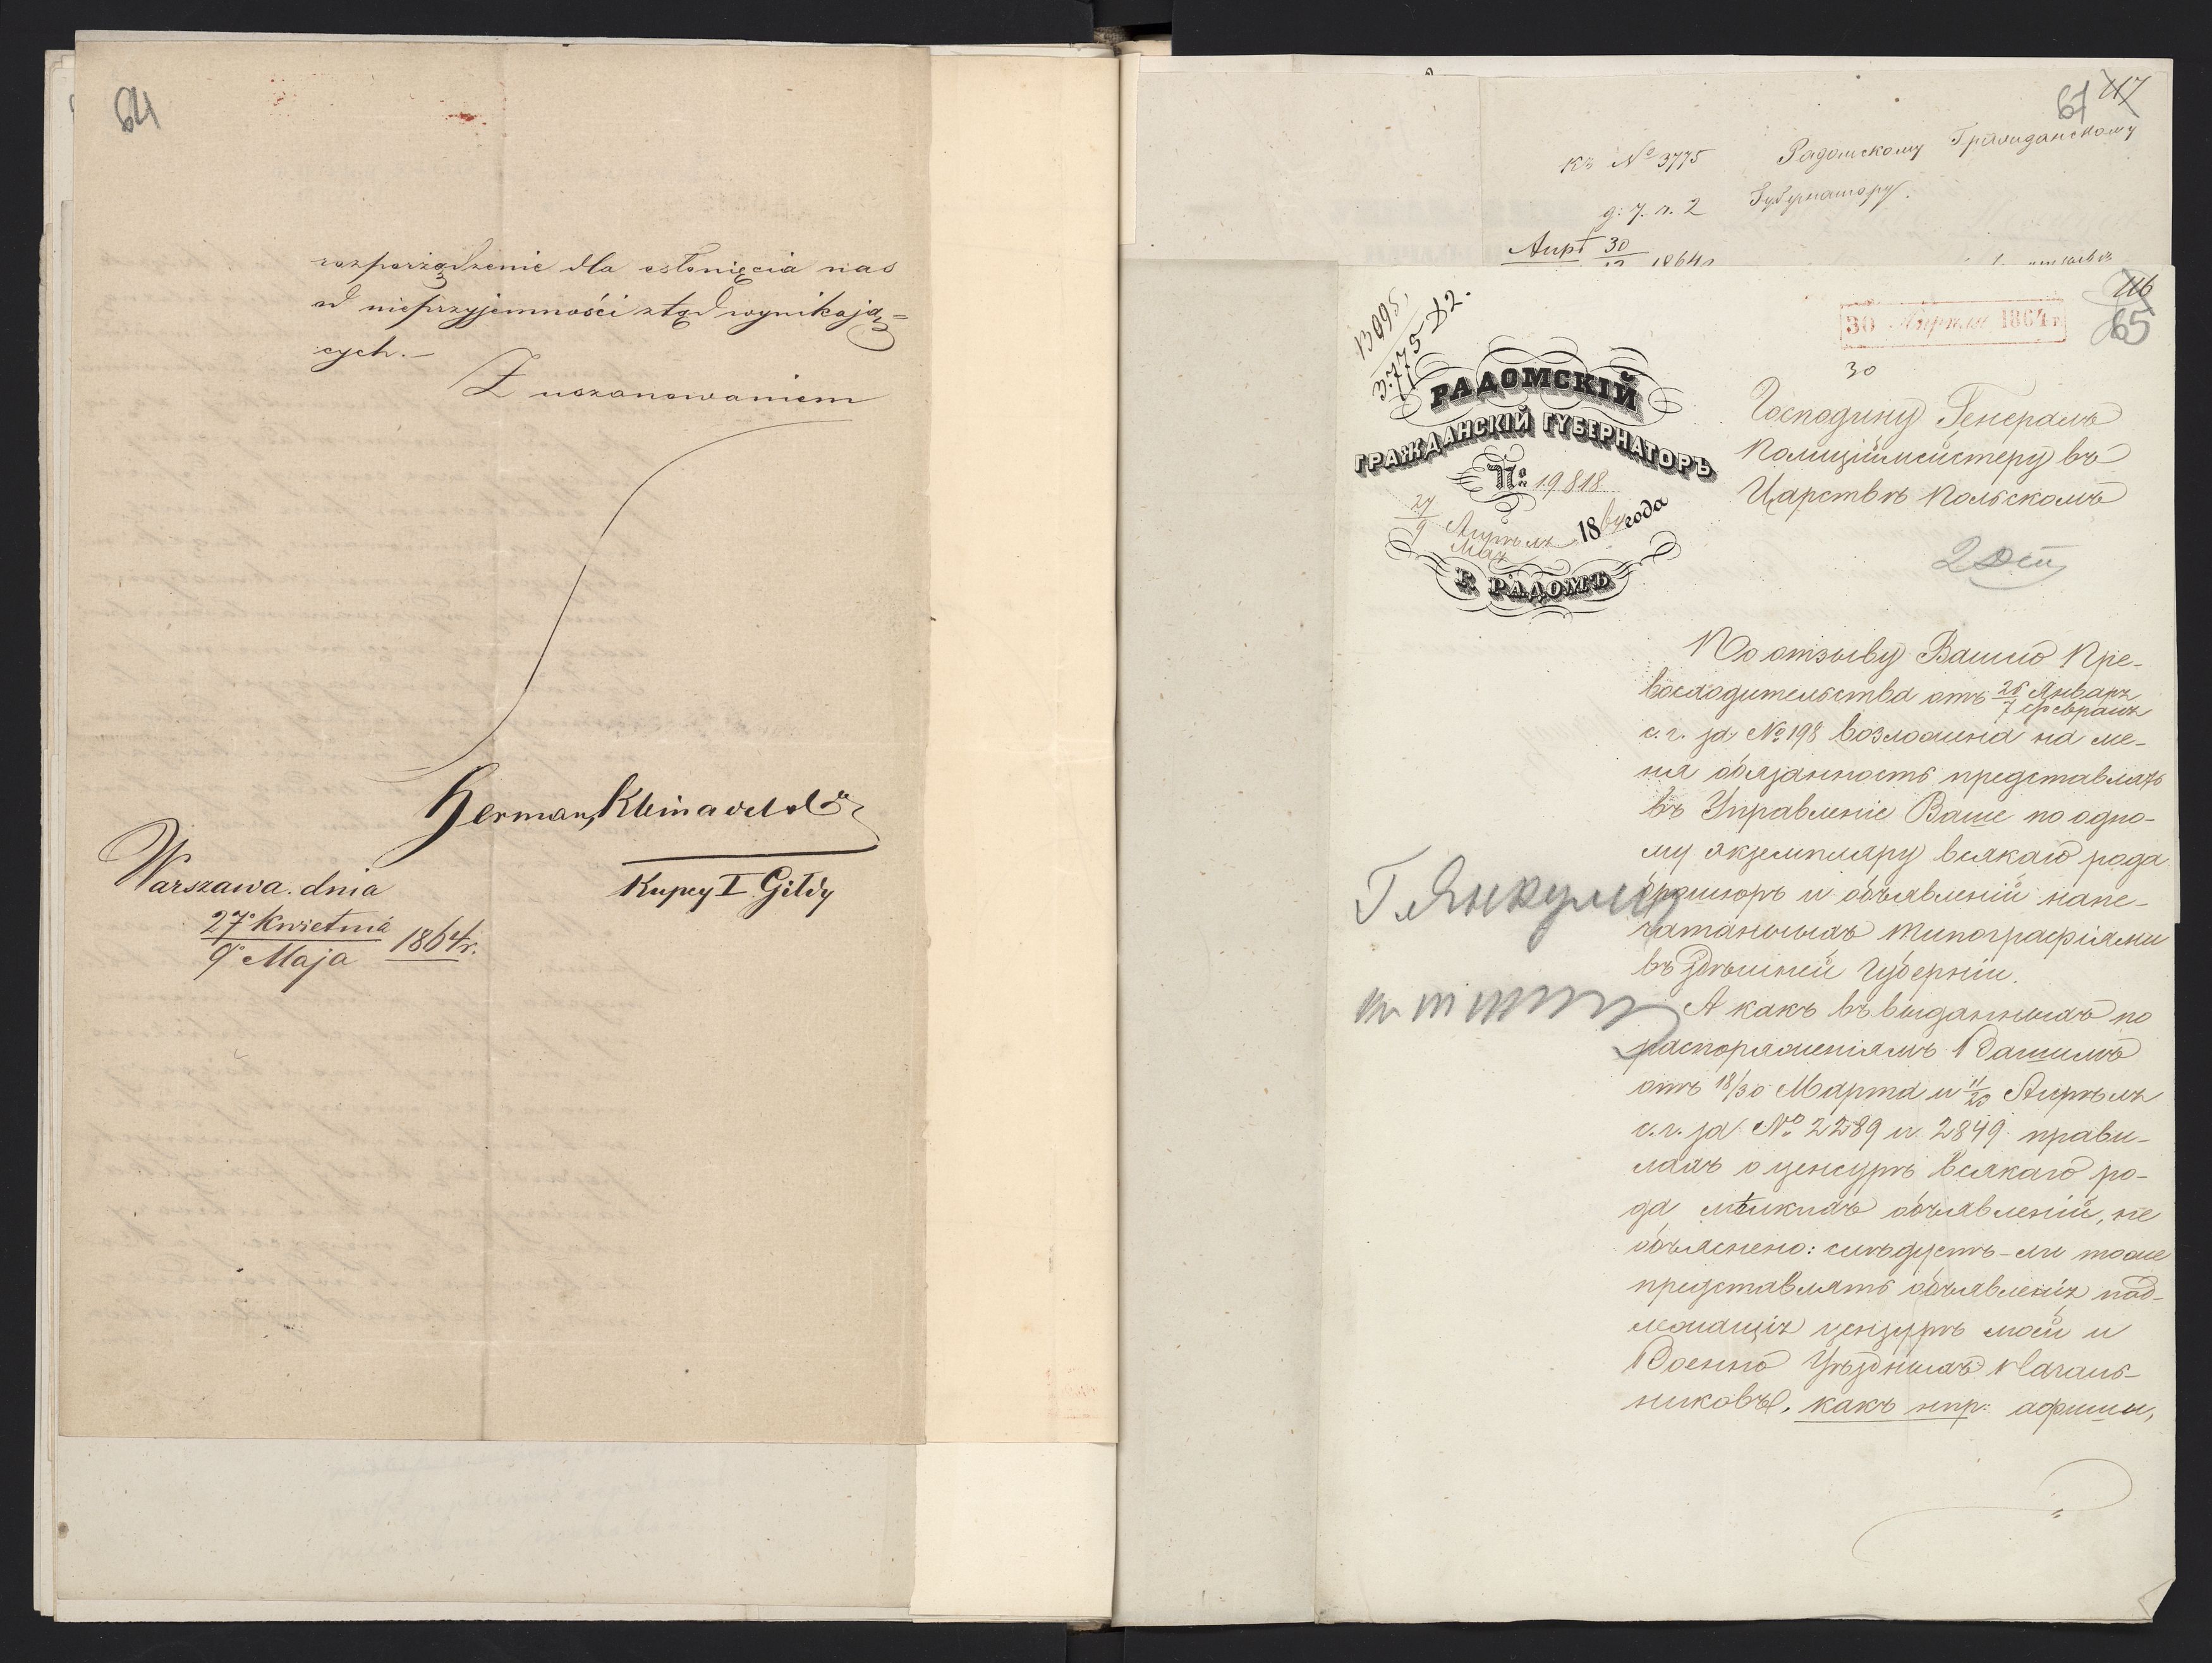 64
rozporządzenie dla osłonięcia nas
od nieprzyjemności ztąd wynikają=
cych.–
Z uszanowaniem
Herman
Kupcy I Gildy
Warszawa. dnia
27º Kwietnia
9º Maja 1864r.
67 117
Къ № 3775
Радомскому Гражданскому
Губернатору.
30
1864
116
65
30 Апрѣля 1864 г
30
3775 Д2.
РАДОМСКІЙ
ГРАЖДАНСКІЙ ГУБЕРНАТОРЪ
№ 19818
27/9 Апрѣля/Мая 1864 года
Г. РАДОМЪ
Господину Генералъ
Полиціймейстеру въ
Царствѣ Польскомъ
По отзыву Вашего Пре-
восходительства отъ 26/7 Января/Февраля
с. г. за № 198 возложена на ме-
ня обязанность представлять
въ Управленіе Ваше по одно-
му экземпляру всякаго рода
брошюръ и объявленій напе-
чатанныхъ типографіями
въ здѣшней Губерніи.
А какъ въ выданныхъ по
распоряженіямъ Вашимъ
отъ 18/30 Марта и Апрѣля
с. г. за № 2289 и 2849 прави-
лахъ о ценсурѣ всякаго ро-
да мелкихъ объявленій, не
объяснено: слѣдуетъ-ли тоже
представлять объявленія под-
лежащія цензурѣ моей и
Военно Уѣздныхъ Началь-
никовъ, какъ нпр: афиши,